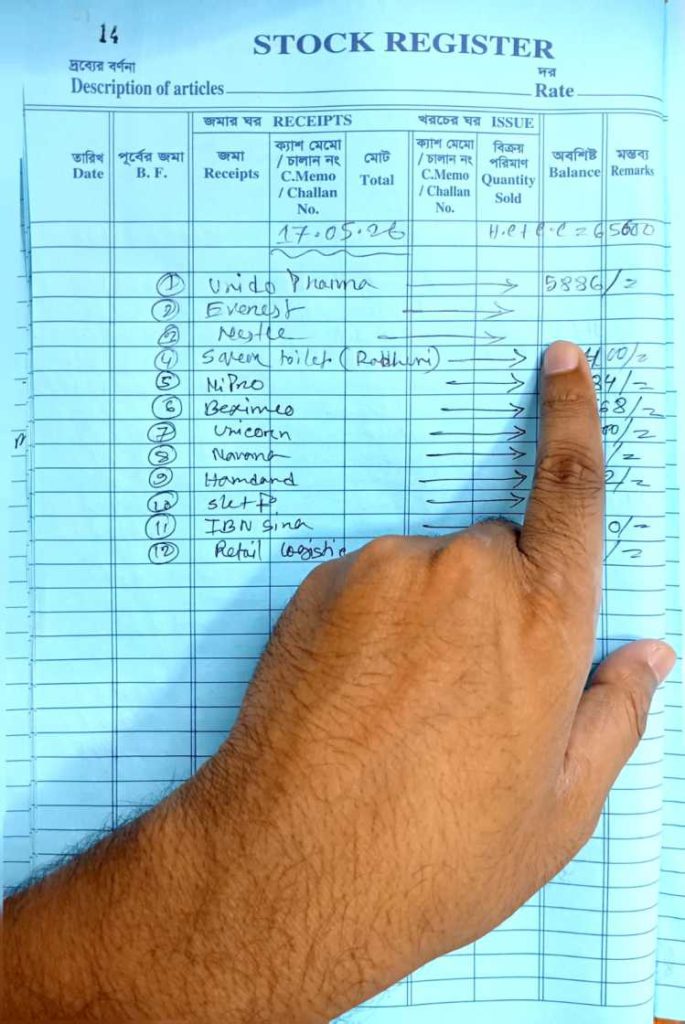 14
STOCK REGISTER
দ্রব্যের বর্ণনা
Description of articles
দর
Rate
জমার ঘর RECEIPTS
খরচের ঘর ISSUE
তারিখ
Date
পূর্বের জমা
B. F.
জমা
Receipts
ক্যাশ মেমো
/ চালান নং
C.Memo
/ Challan
No.
মোট
Total
ক্যাশ মেমো
/ চালান নং
C.Memo
/ Challan
No.
বিক্রয়
পরিমাণ
Quantity
Sold
অবশিষ্ট
Balance
মন্তব্য
Remarks
17.05.26
= 65600
① Unido Pharma → 5886/=
② Everest →
③ Nestle →
④ toilet ( → 400/=
⑤ NiPRO → 34/=
⑥ Beximco → 68/=
⑦ Unicorn → 00/=
⑧ Navana → /=
⑨ Hamdard → 2/=
⑩ →
⑪ IBN Sina 0/=
⑫ Retail Logistic /=